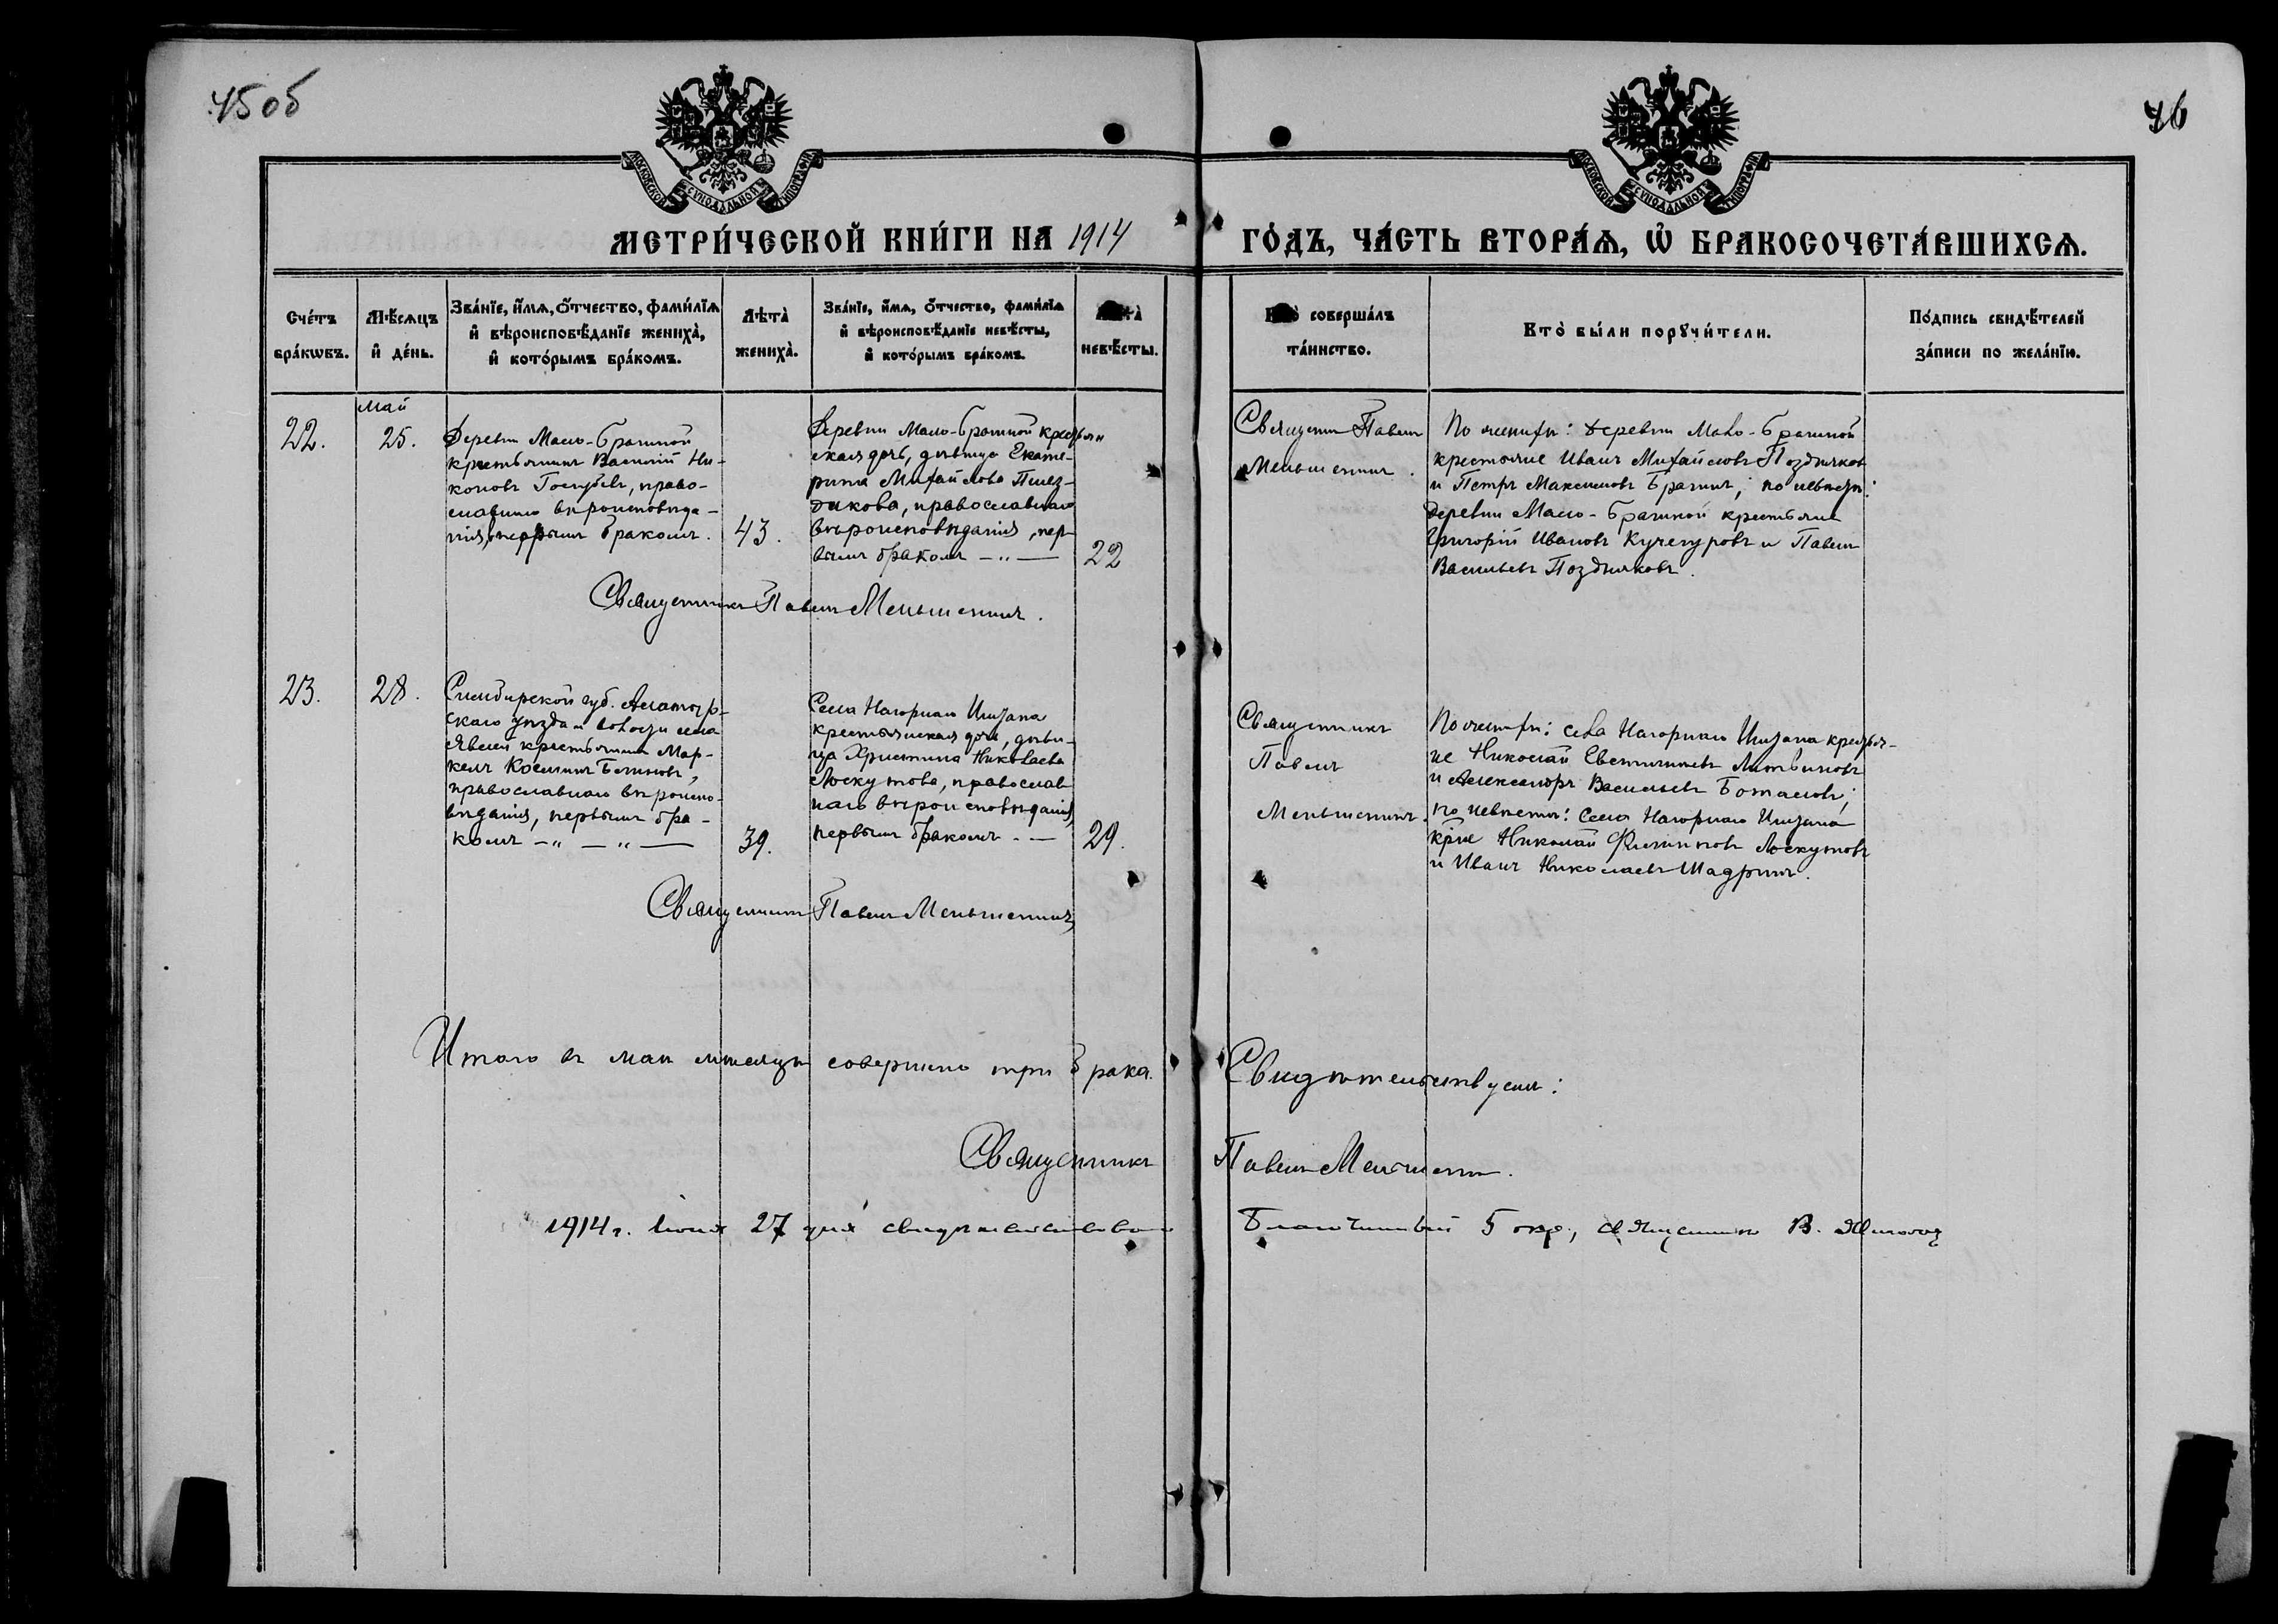 45об
46
МОСКОВСКОЙ СѴНОДАЛЬНОЙ ТИПОГРАФІИ
МОСКОВСКОЙ СѴНОДАЛЬНОЙ ТИПОГРАФІИ
МЕТРИ́ЧЕСКОЙ КНИ́ГИ НА 1914 ГО́ДЪ, ЧА́СТЬ ВТОРА́Ѧ, Ѽ БРАКОСОЧЕТА́ВШИХСѦ.
Сче́тъ
бра́кѡвъ.
Мѣ́сѧцъ
и҆ де́нь.
Зва́нїе, и҆́мѧ, ѻ҆́тчество, фами́лїѧ
и҆ вѣроисповѣ́данїе жениха̀,
и҆ кото́рымъ бра́комъ.
Лѣта̀
жениха̀.
Зва́нїе, и҆́мѧ, ѻ҆́тчество, фами́лїѧ
и҆ вѣроисповѣ́данїе невѣ́сты,
и҆ кото́рымъ бра́комъ.
Лѣта̀
невѣ́сты.
Кто̀ соверша́лъ
та́инство.
Кто̀ бы́ли порꙋчи́тели.
По́дпись свидѣ́телей
за́писи по жела́нїю.
22.
май
25.
Деревни Мало-Брагиной
крестьянинъ Василій Ни-
коновъ Голубевъ, право-
славнаго вѣроисповѣда-
нія, первымъ бракомъ.
43.
Деревни Мало-Брагиной крестьян
ская дочь, дѣвица Екате-
рина Михайлова
православнаго
вѣроисповѣданія, пер-
вымъ бракомъ —„—
22
Священникъ Павелъ Меньшенинъ.
Священ Павелъ
Меньшенинъ.
По женихѣ: деревни Мало-Брагиной
крестьяне Иванъ Михайловъ Поздняков
и Петръ Максимовъ Брагинъ; по невѣстѣ:
деревни Мало-Брагиной крестьяне
Григорій Ивановъ Кучегуровъ и Павелъ
Васильевъ Поздняковъ.
23.
28.
Симбирской губ. Алатыр-
скаго уѣзда и волости села
Явлей крестьянинъ Мар-
келъ Косминъ
православнаго вѣроиспо-
вѣданія, первымъ бра-
комъ —„—„—
39.
Села Нагорнаго Иштана
крестьянская дочь, дѣви-
ца Христина Николаева
Лоскутова, православ
наго вѣроисповѣданія,
первымъ бракомъ. —
29.
Священникъ Павелъ Меньшенинъ
Священникъ
Павелъ
Меньшенинъ.
По женихѣ: села Нагорнаго Иштана крестья-
не Николай Литвиновъ
и Александръ Васильевъ Боталовъ;
по невѣстѣ: села Нагорнаго Иштана
кр̃не Николай Филипповъ Лоскутовъ
и Иванъ Николаевъ Шадринъ.
Итого въ маѣ мѣсяцѣ совершено три брака. Свидѣтельствуемъ:
Священникъ Павелъ Меньшенинъ.
1914 г. Іюня 27 дня свидѣтельствовалъ Благочинный 5 окр., священникъ В.